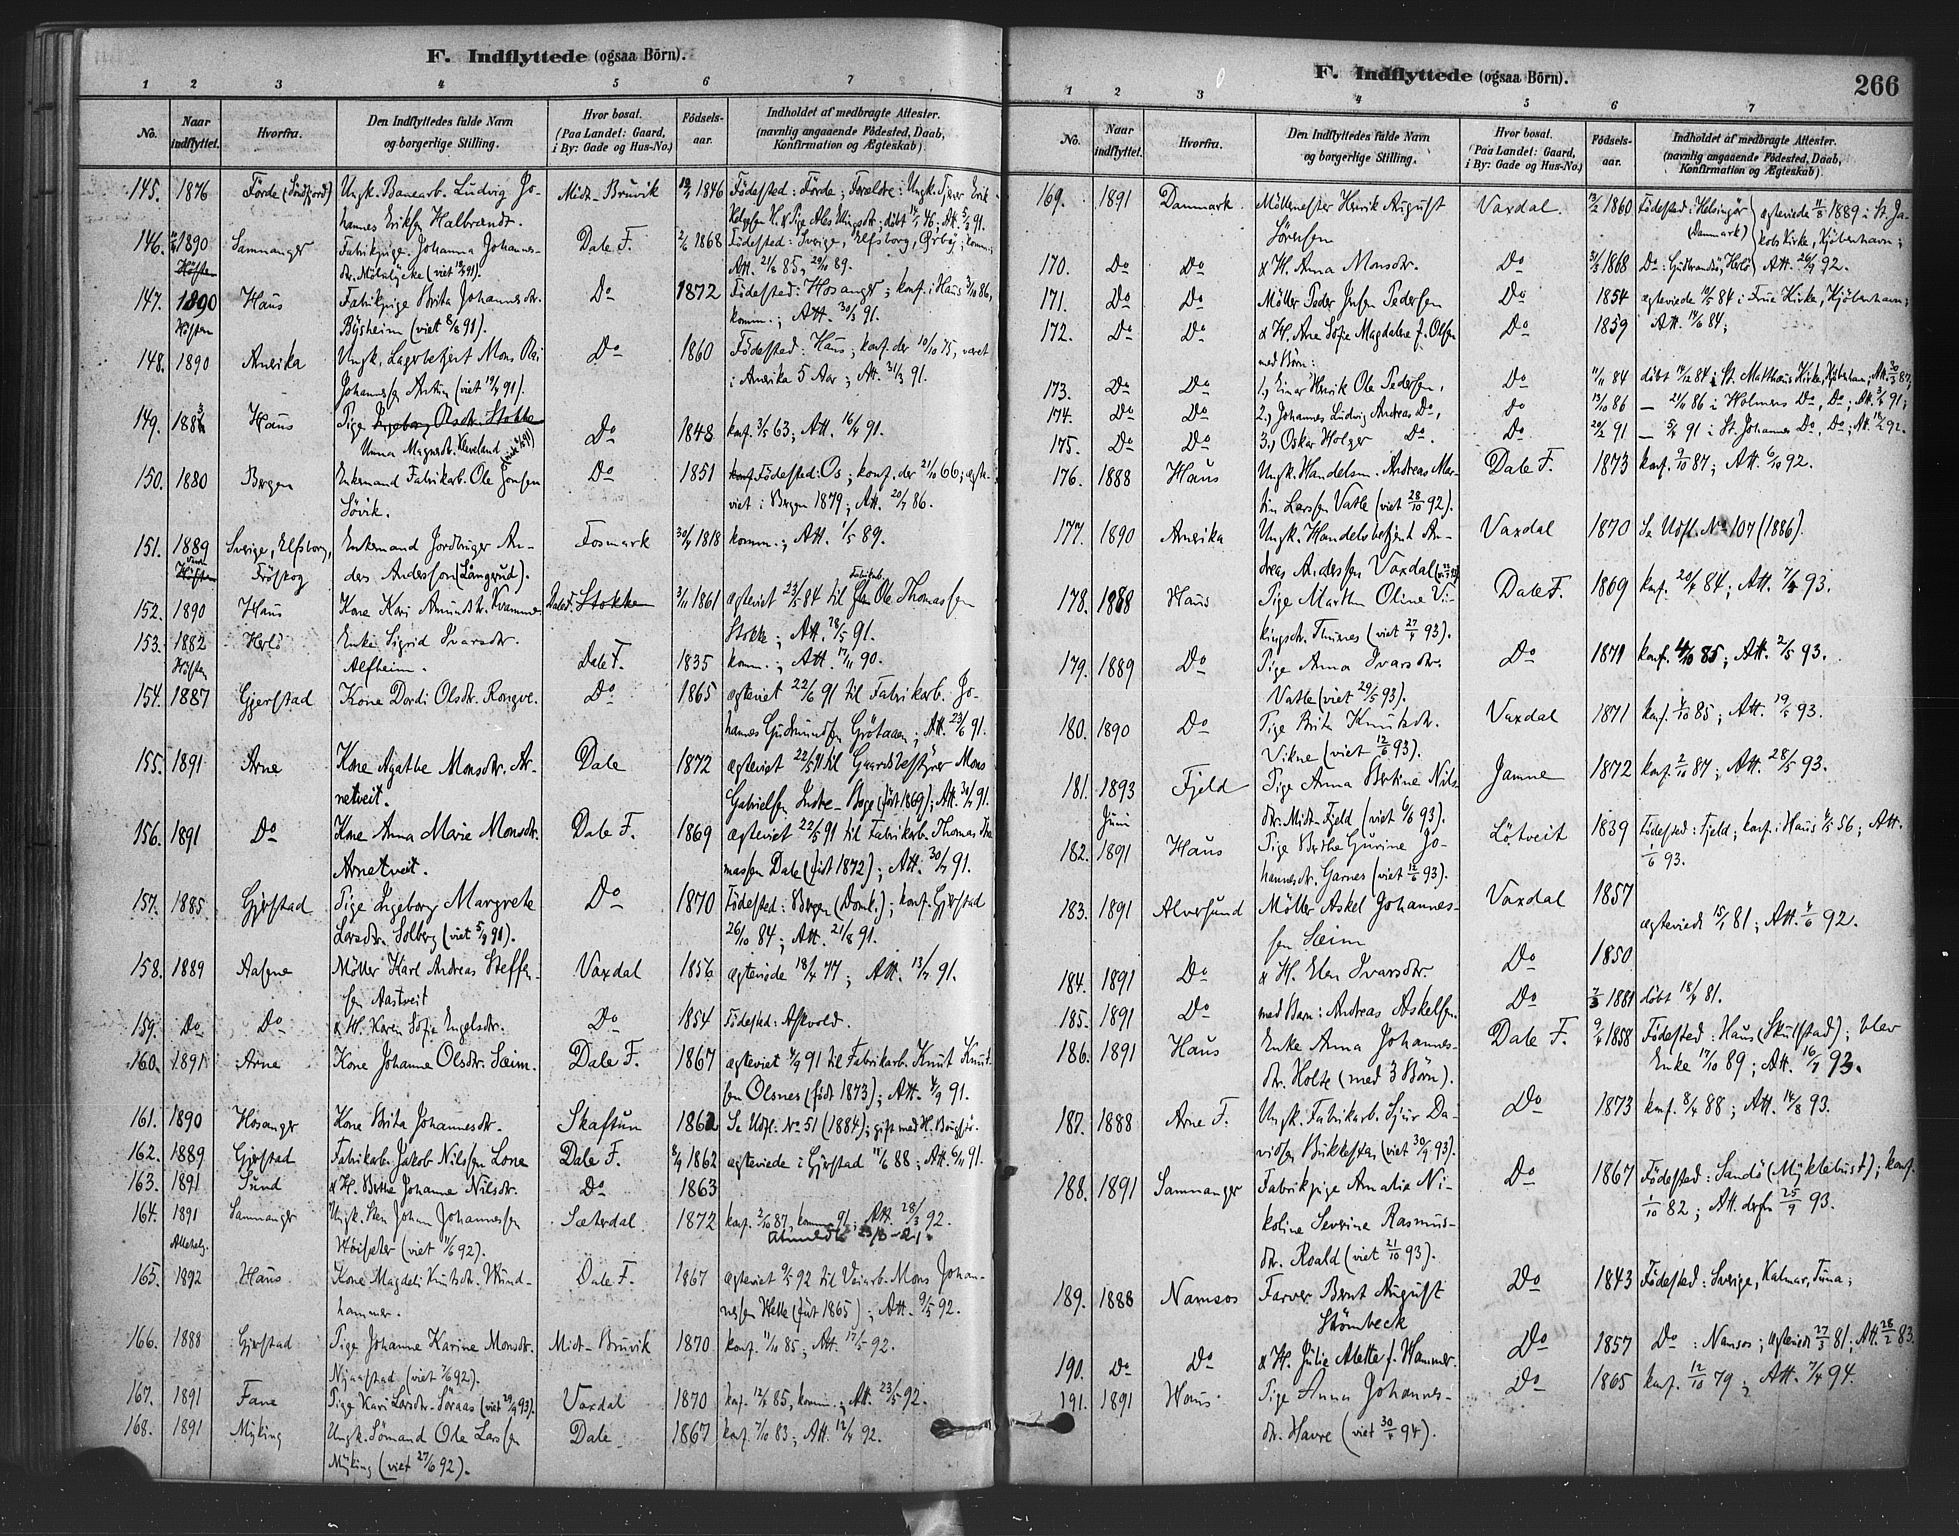 F. Indflyttede (ogsaa Börn).
1 2 3 4 5 6 7
No. Naar indflyttet. Hvorfra. Den Indflyttedes fulde Navn og borgerlige Stilling. Hvor bosat. (Paa Landet: Gaard, i By: Gade og Hus-No.) Födsels-aar. Indholdet af medbragte Attester. (navnlig angaaende Födested, Daab, Konfirmation og Ægteskab).
145. 1876 Förde (Söndfjord) Ungk. Banearb. Ludvig Jo- Midt-Bruvik 1846 Födested: Förde; Forældre: Ungk.
hannes Eriksen Halbrandt.
146. 1890 Samnanger Fabrikpige Johanna Johannes- Dale F. 2/6 1868 Födested: Sverige, Elfsborg, Örby; komm.;
Höften dtr. Mölnlycke (viet 91). Att. 21/8 85, 29/11 89.
147. 1890 Haus Fabrikpige Brita Johannesdtr. Do 1872 Födested: Hosanger; konf. i Haus 3/10 86,
Höften Bysheim (viet 8/8 91). komm.; Att. 30/3 91.
148. 1890 Amerika Ungk. Lagerbetjent Mons Do 1860 Födested: Haus; konf. der 10/10 75, været
Johannessen (viet 91). i Amerika 5 Aar; Att. 31/3 91.
149. Haus Pige Ingeborg Olsdtr. Stokke Do 1848 konf. 3/5 63; Att. 16/4 91.
Unna Magnsdtr. Kleveland
150. 1880 Bergen Enkemand Fabrikarb. Ole Jonsen Do 1851 konf. Födested: Os; konf. der 21/10 66; ægte-
Sövik. viet i Bergen 1879; Att. 20/7 86.
151. 1889 Sverige, Elfsborg, Enkemand Jordbruger An- Fosmark 1818 komm.; Att. 1/5 89.
Höften Fröskog ders Andersson (Långerud).
152. 1890 Haus Kone Kari Amundsdtr. Kvamme Dale F. Stokke 3/11 1861 ægteviet 23/5 84 til Fabrikarb. Ole Thomassen
Stokke; Att. 18/5 91.
153. 1882 Herlö Enke Sigrid Ivarsdtr. Dale F. 1835 komm.; Att. 17/11 90.
Höften Alfheim.
154. 1887 Gjerstad Kone Dordi Olsdtr. Rongve. Do 1865 ægteviet 22/6 91 til Fabrikarb. Jo-
hannes Gudmundsen Grötaaen; Att. 23/6 91.
155. 1891 Arne Kone Agathe Monsdtr. Ar- Dale 1872 ægteviet 22/5 91 til Gaardsbestyrer Mons
netveit. Gabrielsen Indre-Boge (født 1869); Att. 30/7 91.
156. 1891 Do Kone Anna Marie Monsdtr. Dale F. 1869 ægteviet 22/5 91 til Fabrikarb. Thomas Tho-
Arnetveit. massen Dale (født 1872); Att. 30/7 91.
157. 1885 Gjerstad Pige Ingeborg Margrete Do 1870 Födested: Bergen (Domk.); konf. Gjerstad
Larsdtr. Solberg (viet 5/9 91). 26/10 84; Att. 21/8 91.
158. 1889 Aafene Möller Karl Andreas Steffen- Vaxdal 1856 ægteviede 18/4 77; Att. 13/7 91.
sen Aastveit
159. Do Do & H. Karen Sofie Engelsdtr. Do 1854 Födested: Askvold.
160. 1891 Arne Kone Johanne Olsdtr. Seim. Dale F. 1867 ægteviet 4/9 91 til Fabrikarb. Knut Knut-
sen Olsnes (født 1873); Att. 4/9 91.
161. 1890 Hosanger Kone Brita Johannesdtr. Skaftun 1862 Se Udfl. No 51 (1884); gift med H.
162. 1889 Gjerstad Fabrikarb. Jakob Nilssen Lone Dale F. 8/9 1862 ægteviede i Gjerstad 11/6 88; Att. 6/11 91.
163. 1891 Sund & H. Berthe Johanne Nilsdtr. Do 1863
164. 1891 Samnanger Ungk. Sten Johan Johannessen Sæterdal 1872 konf. 2/10 87, komm. 91; Att. 28/3 92.
Allehelg. Höisæter (viet 11/6 92).
165. 1892 Haus Kone Magdeli Knutsdtr. Wund- Dale F. 1867 ægteviet 9/5 92 til Veiarb. Mons Johan-
hammer. nesen Helle (født 1865); Att. 9/5 92.
166. 1888 Gjerstad Pige Johanne Karine Monsdtr. Midt-Bruvik 1870 konf. 11/10 85; Att. 17/5 92.
Njaastad (viet 7/6 92).
167. 1891 Fane Pige Kari Larsdtr. Söraas (viet 29/9 93). Vaxdal 1870 konf. 12/4 85, komm.; Att. 23/5 92.
168. 1891 Myking Ungk. Sömand Ole Larssen Dale 1867 konf. 7/10 83; Att. 12/4 92.
Myking (viet 27/6 92).
F. Indflyttede (ogsaa Börn).
266
1 2 3 4 5 6 7
No. Naar indflyttet. Hvorfra. Den Indflyttedes fulde Navn og borgerlige Stilling. Hvor bosat. (Paa Landet: Gaard, i By: Gade og Hus-No.) Födsels-aar. Indholdet af medbragte Attester. (navnlig angaaende Födested, Daab, Konfirmation og Ægteskab).
169. 1891 Danmark Möllemester Henrik August Vaxdal. 1860 Födested: Helsingör (Danmark) ægteviede 11/8 1889 i St. Ja-
Sörensen kobs Kirke, Kjöbenhavn;
170. Do Do & H. Anna Monsdtr. Do 31/3 1868 Do: Herlö Att. 26/9 92.
171. Do Do Möller Peder Jensen Pedersen Do 1854 ægteviede 18/5 84 i Frue Kirke, Kjöbenhavn;
172. Do Do & H. Ane Sofie Magdalene f. Olsen Do 1859 Att. 84;
med Börn:
173. Do Do 1., Einar Henrik Ole Pedersen, Do 11/11 84 döbt 14/12 84 i St. Matthæus Kirke, Kjöbenhavn, Att. 87;
174. Do Do 2., Johannes Ludvig Andreas Do, Do 13/10 86 — 21/11 86 i Holmens Do, Do; Att. 91;
175. Do Do 3., Oskar Holger Do. Do 20/2 91 — 5/4 91 i St. Johannes Do, Do; Att. 92.
176. 1888 Haus Ungk. Handelsm. Andreas Mar- Dale F. 1873 konf. 9/10 87; Att. 6/10 92.
tin Larssen Vatle (viet 28/10 92).
177. 1890 Amerika Ungk. Handelsbetjent An- Vaxdal 1870 Se Udfl. No 107 (1886).
dreas Anderssen Vaxdal
178. 1888 Haus Pige Marthe Oline Vi- Dale F. 1869 konf. 20/4 84; Att. 7/4 93.
kingsdtr. Thunes (viet 27/4 93).
179. 1889 Do Pige Anna Ivarsdtr. Do 1871 konf. 4/10 85; Att. 2/5 93.
Vatle (viet 29/5 93).
180. 1890 Do Pige Brita Knutsdtr. Vaxdal 1871 konf. 4/10 85; Att. 19/5 93.
Vikne (viet 12/6 93).
181. 1893 Fjeld Pige Anna Bertine Nils- Jamne 1872 konf. 2/10 87; Att. 28/5 93.
Juni dtr. Midt-Fjeld (viet 6/6 93).
182. 1891 Haus Pige Berthe Gurine Jo- Lötveit 1839 Födested: Fjeld; konf. i Haus 4/5 56; Att.
hannesdtr. Garnes (viet 12/6 93). 1/6 93.
183. 1891 Alversund Möller Askel Johannes- Vaxdal 1857 ægteviede 15/1 81; Att. 4/6 92.
sen Seim
184. 1891 Do & H. Elen Ivarsdtr. Do 1850
185. 1891 Do med Barn: Andreas Askelsen. Do 2/3 1881 döbt 18/4 81.
186. 1891 Haus Enke Anna Johannes- Dale F. 9/4 1858 Födested: Haus (Skulstad); blev
dtr. Holte (med 3 Börn). Enke 17/10 89; Att. 16/7 93.
187. 1888 Arne F. Ungk. Fabrikarb. Sjur Da- Do 1873 konf. 8/4 88; Att. 14/8 93.
vidsen Bukkesten (viet 30/9 93).
188. 1891 Samnanger Fabrikpige Amalie Ni- Do 1867 Födested: Sandö (Myklebust); konf.
koline Severine Rasmus- 1/10 82; Att. derfra 25/9 93.
dtr. Roald (viet 21/10 93).
189. 1888 Namsos Farver Bernt August Do 1843 Födested: Sverige, Kalmar, Tuna;
Strömbeck
190. Do Do & H. Julie Alette f. Hammer. Do 1857 Do: Namsos; ægteviede 27/3 81; Att. 28/2 83.
191. 1891 Haus Pige Anna Johannes- Do 1865 konf. 12/10 79; Att. 7/4 94.
dtr. Havre (viet 30/4 94).